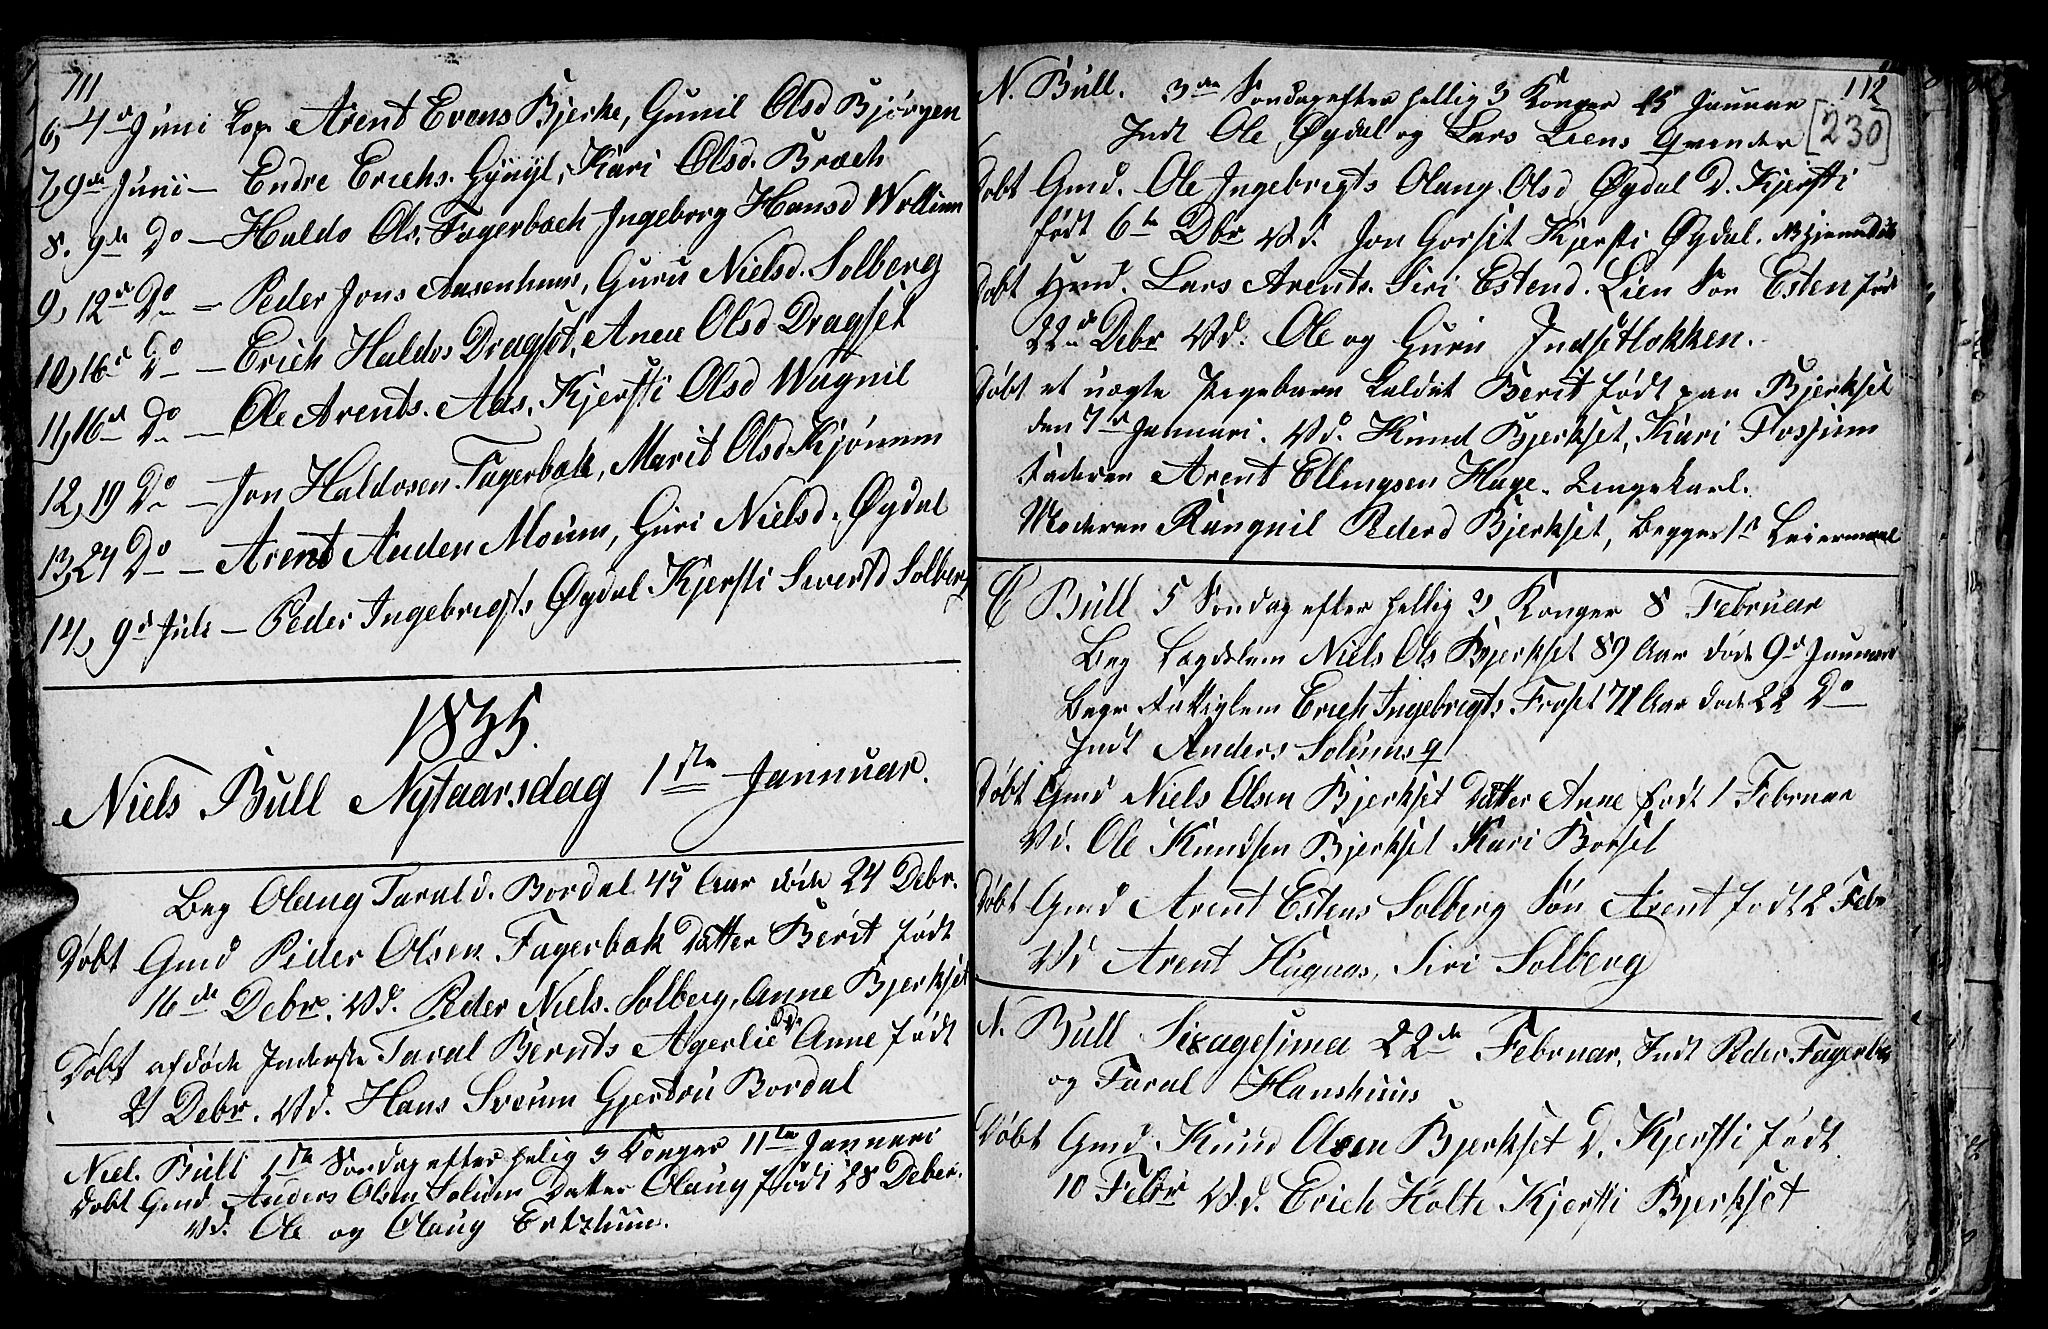 111
6, 4de Juni Cop Arent Evens Bjerke, Gunil Olsd Bjørgen
7, 9de Juni — Endre Erichs. Kari Olsd. Bræch
8. 9de Do — Haldo Ols. Fagerbach Ingeborg Hansd Wollum
9, 12de Do — Peder Jons Aasenhuus, Guru Nielsd. Solberg
10, 16de Do — Erich Haldos Dragset, Anne Olsd Dragset
11, 16de Do — Ole Arents. Aas, Kjersti Olsd Wagnil
12, 19 Do — Jon Haldosen Fagerbak, Marit Olsd Kjønum
13, 24 Do — Arent Anders Moum, Guri Nielsd. Øydal
14, 9de Juli — Peder Ingebrigts Øydal Kjersti Sivertsd Solberg
1835.
Niels Bull Nytaarsdag 1ste Januar.
Beg Olaug Tarald. Bordal 45 Aar døde 24 Debr.
Døbt Gmd Peder Olsen Fagerbak Datter Berit født
16de Debr. Vd. Peder Niels. Solberg, Anne Bjerkset
Døbt afdøde Inderste Taral Bernts Agerlie D. Anne født
Debr. Vd. Hans Sveum Gjertru Bordal
Niel. Bull 1ste Søndag efter helig 3 Konger 11te Januari
Døbt Gmd Anders Olsen Solum Datter Olaug født 28 Debr.
Vd. Ole og Olaug
N. Bull. 3die Søndag efter hellig 3 Konger 25 Januar 112
Indt Ole Øydal og Lars Liens Qvinder [230]
Døbt Gmd. Ole Ingebrigts Olaug Olsd Øydal D. Kjersti
født 6te Dbr Vd. Jon Gorset Kjersti Øydal.
Døbt Hmd. Lars Arents. Siri Estend. Lien Søn Esten født
22de Debr Vd. Ole og Guru Indsethokken.
Døbt et uægte Pigebarn kaldet Berit født paa Bjerkset
den 7de Januari. Vd. Knud Bjerkset, Kari Flosjum
Faderen Arent Ellingsen Hage. Ungekarl.
Moderen Rangnil Pedersd Bjerkset, Begges 1te Leiermaal
C Bull 5 Søndag efter hellig 3 Konger 8 Februar
Beg Lægdslem Niels Ols Bjerkset 89 Aar døde 9de Januari
Begr Fattiglem Erich Ingebrigts Froset 71 Aar døde 22 Do
Indt Anders Solums q
Døbt Gmd Niels Olsen Bjerkset Datter Anne født 1 Februar
Vd. Ole Knudsen Bjerkset Kari Borset
Døbt Gmd Arent Estens Solberg Søn Arent født 2 Febr
Vd Arent Hugaas, Siri Solberg
N. Bull Sixagesima 22de Februar, Indt Peder Fagerba
og Taral Hanshuus
Døbt Gmd. Knud Olsen Bjerkset D. Kjersti født
10 Febr Vd. Erich Holte Kjersti Bjerkset